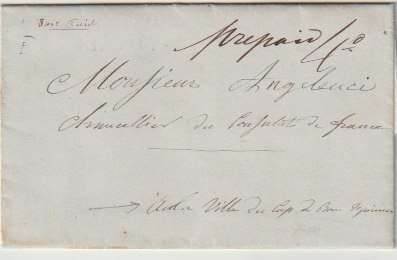 prepaid
Monsieur Angelucci
Chancellier du Consulat de france
Ville du Cap de Bon Espérance